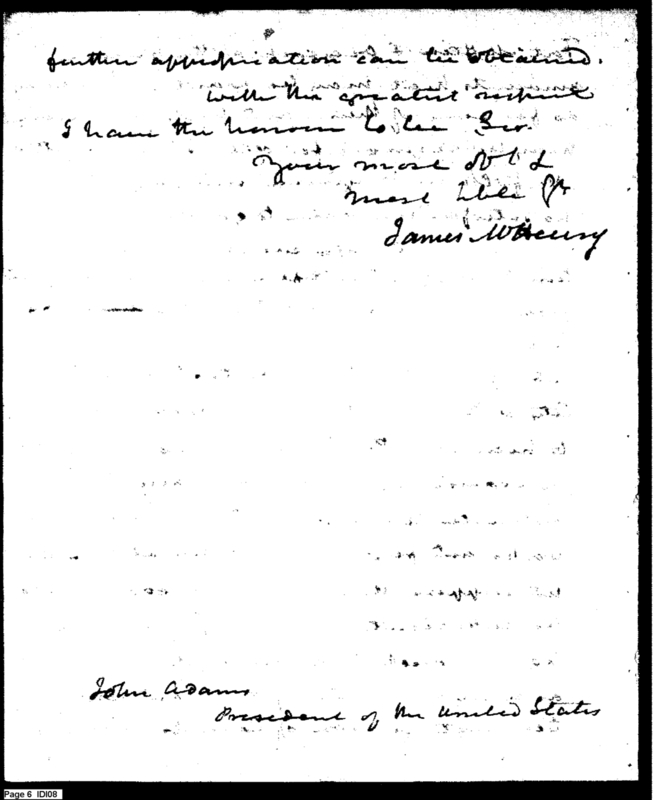 further appropriation can be obtained.
With the greatest respect
I have the honour to be Sir
Your most obt &
most hble St
James McHenry
John Adams
President of the United States
Page 6 IDI08